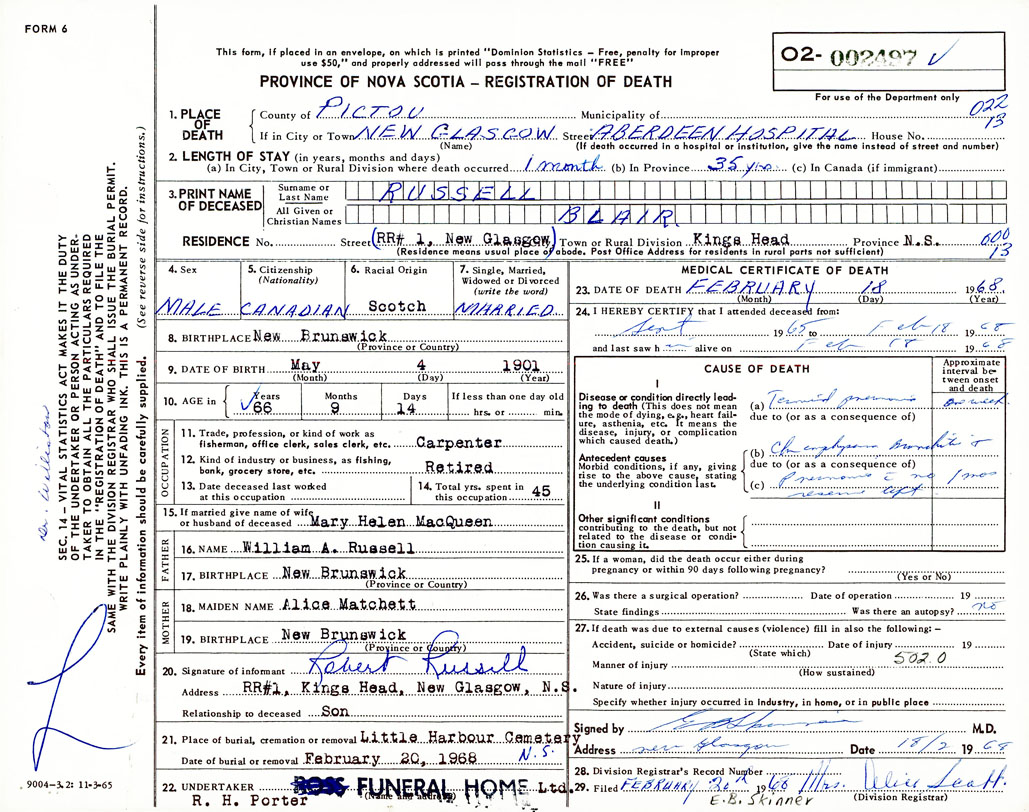 FORM 6
This form, if placed in an envelope, on which is printed "Dominion Statistics – Free, penalty for improper
use $50," and properly addressed will pass through the mail "FREE"
PROVINCE OF NOVA SCOTIA – REGISTRATION OF DEATH
O2- 002497 ✓
For use of the Department only
022
13
1. PLACE OF DEATH
County of PICTOU Municipality of
If in City or Town NEW GLASGOW Street ABERDEEN HOSPITAL House No.
(Name) (If death occurred in a hospital or institution, give the name instead of street and number)
2. LENGTH OF STAY (in years, months and days)
(a) In City, Town or Rural Division where death occurred 1 month (b) In Province 35 yrs. (c) In Canada (if immigrant)
3. PRINT NAME OF DECEASED
Surname or Last Name RUSSELL
All Given or Christian Names BLAIR
RESIDENCE No. Street (RR# 1, New Glasgow) Town or Rural Division Kings Head Province N.S.
(Residence means usual place of abode. Post Office Address for residents in rural parts not sufficient)
000
13
4. Sex
MALE
5. Citizenship
(Nationality)
CANADIAN
6. Racial Origin
Scotch
7. Single, Married,
Widowed or Divorced
(write the word)
MARRIED
8. BIRTHPLACE New Brunswick
(Province or Country)
9. DATE OF BIRTH May 4 1901
(Month) (Day) (Year)
10. AGE in Years Months Days If less than one day old
✓66 9 14 hrs. or min.
OCCUPATION
11. Trade, profession, or kind of work as
fisherman, office clerk, sales clerk, etc. Carpenter
12. Kind of industry or business, as fishing,
bank, grocery store, etc. Retired
13. Date deceased last worked
at this occupation
14. Total yrs. spent in
this occupation 45
15. If married give name of wife
or husband of deceased Mary Helen MacQueen
FATHER
16. NAME William A. Russell
17. BIRTHPLACE New Brunswick
(Province or Country)
MOTHER
18. MAIDEN NAME Alice Matchett
19. BIRTHPLACE New Brunswick
(Province or Country)
20. Signature of informant Robert Russell
Address RR#1, Kings Head, New Glasgow, N.S.
Relationship to deceased Son
21. Place of burial, cremation or removal Little Harbour Cemetery
N.S.
Date of burial or removal February 20, 1968
22. UNDERTAKER FUNERAL HOME Ltd.
(Name and address)
R. H. Porter
MEDICAL CERTIFICATE OF DEATH
23. DATE OF DEATH FEBRUARY 18 1968.
(Month) (Day) (Year)
24. I HEREBY CERTIFY that I attended deceased from:
Sept 1965 to Feb 18 1968
and last saw h alive on Feb 18 1968
CAUSE OF DEATH
Approximate
interval be-
tween onset
and death
I
Disease or condition directly lead-
ing to death (This does not
mean the mode of dying, e.g., heart failure,
asthenia, etc. It means the
disease, injury, or complication
which caused death.)
(a)
due to (or as a consequence of)
Antecedent causes
Morbid conditions, if any, giving
rise to the above cause, stating
the underlying condition last.
(b)
due to (or as a consequence of)
(c)
II
Other significant conditions
contributing to the death, but not
related to the disease or condi-
tion causing it.
25. If a woman, did the death occur either during
pregnancy or within 90 days following pregnancy?
(Yes or No)
26. Was there a surgical operation? Date of operation 19
State findings Was there an autopsy? no
27. If death was due to external causes (violence) fill in also the following: –
Accident, suicide or homicide? Date of injury 19
(State which)
502.0
Manner of injury
(How sustained)
Nature of injury
Specify whether injury occurred in industry, in home, or in public place
Signed by M.D.
Address New Glasgow Date 18/2 1968
28. Division Registrar's Record Number
29. Filed FEBRUARY 1968 Mrs. Alice Scott.
(Division Registrar)
E.B. Skinner
SEC. 14 – VITAL STATISTICS ACT MAKES IT THE DUTY
OF THE UNDERTAKER OR PERSON ACTING AS UNDER-
TAKER TO OBTAIN ALL THE PARTICULARS REQUIRED
IN THE "REGISTRATION OF DEATH" AND TO FILE THE
SAME WITH THE DIVISION REGISTRAR WHO SHALL ISSUE THE BURIAL PERMIT.
WRITE PLAINLY WITH UNFADING INK. THIS IS A PERMANENT RECORD.
Every item of information should be carefully supplied. (See reverse side for instructions.)
9004-3.2: 11-3-65